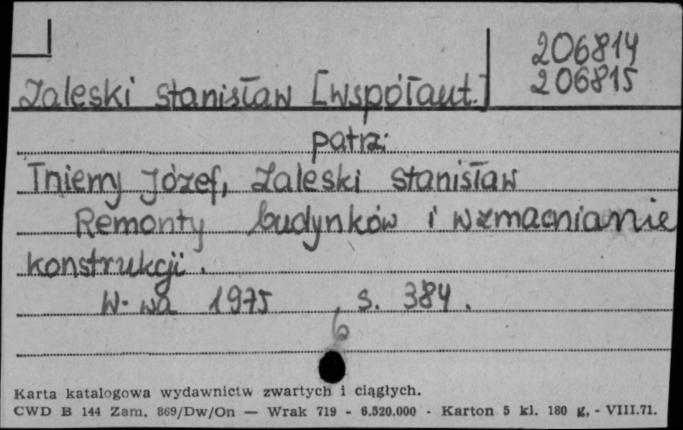 206814
206815
Zaleski Stanisław [współaut.]
patrz:
Thierry Józef, Zaleski Stanisław
Remonty budynków i wzmacnianie
konstrukcji.
W-wa 1975, s. 384.
6
Karta katalogowa wydawnictw zwartych i ciągłych.
CWD B 144 Zam. 869/Dw/On — Wrak 719 - 6.520.000 - Karton 5 kl. 180 g, - VIII.71.